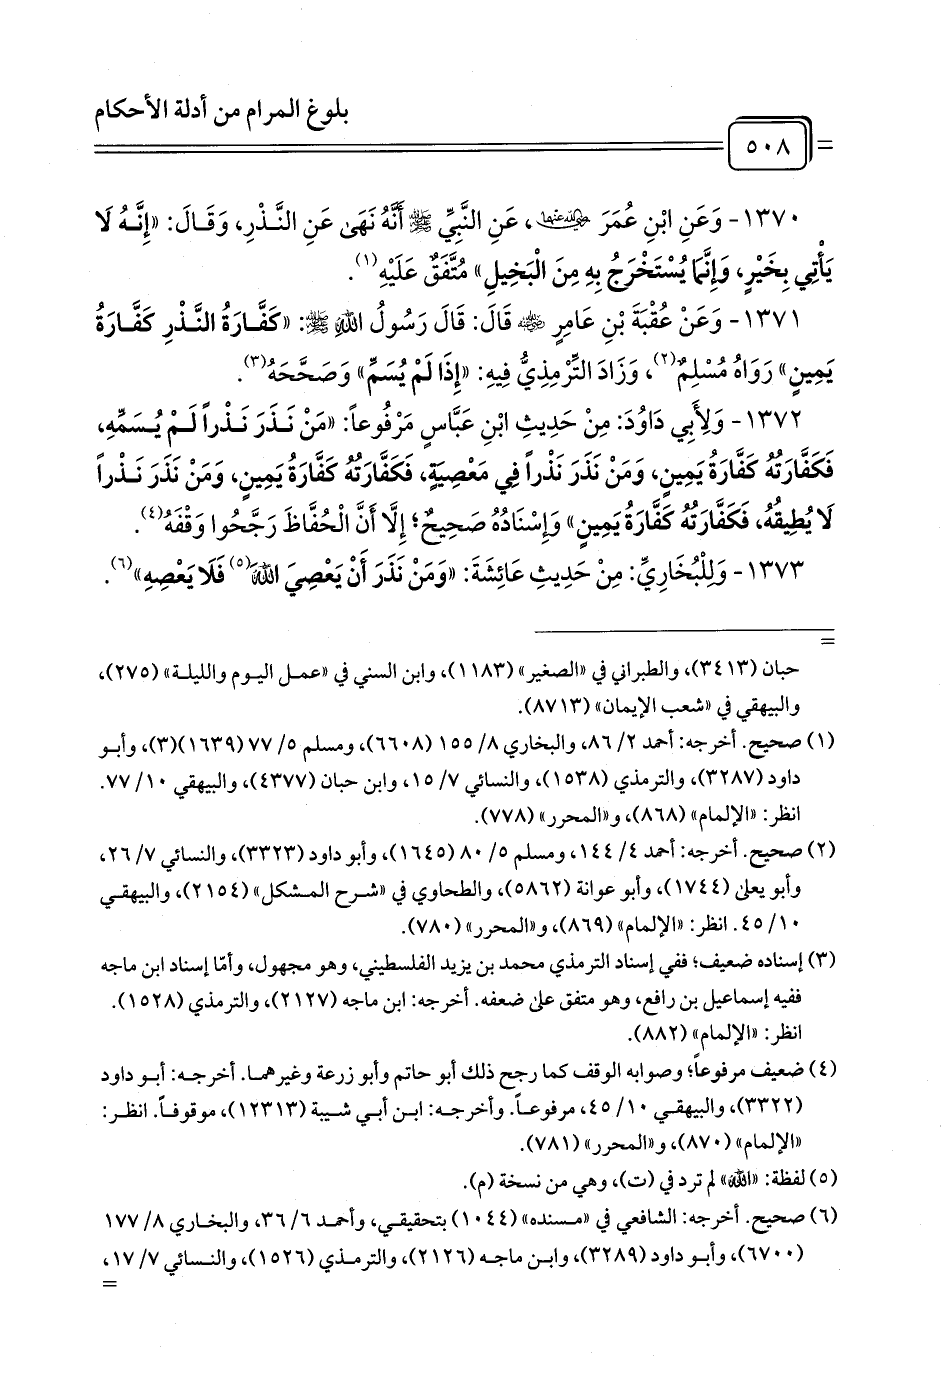 بلوغ المرام من أدلة الأحكام
٥٠٨
١٣٧٠- وَعَنِ ابْنِ عُمَرَ رضي الله عنهما، عَنِ النَّبِيِّ ﷺ أَنَّهُ نَهَىٰ عَنِ النَّذْرِ، وَقَالَ: «إِنَّهُ لَا
يَأْتِي بِخَيْرٍ، وَإِنَّمَا يُسْتَخْرَجُ بِهِ مِنَ الْبَخِيلِ» مُتَّفَقٌ عَلَيْهِ(١).
١٣٧١- وَعَنْ عُقْبَةَ بْنِ عَامِرٍ رضي الله عنه قَالَ: قَالَ رَسُولُ اللهِ ﷺ: «كَفَّارَةُ النَّذْرِ كَفَّارَةُ
يَمِينٍ» رَوَاهُ مُسْلِمٌ(٢)، وَزَادَ التِّرْمِذِيُّ فِيهِ: «إِذَا لَمْ يُسَمِّ» وَصَحَّحَهُ(٣).
١٣٧٢- وَلِأَبِي دَاوُدَ: مِنْ حَدِيثِ ابْنِ عَبَّاسٍ مَرْفُوعاً: «مَنْ نَذَرَ نَذْراً لَمْ يُسَمِّهِ،
فَكَفَّارَتُهُ كَفَّارَةُ يَمِينٍ، وَمَنْ نَذَرَ نَذْراً فِي مَعْصِيَةٍ، فَكَفَّارَتُهُ كَفَّارَةُ يَمِينٍ، وَمَنْ نَذَرَ نَذْراً
لَا يُطِيقُهُ، فَكَفَّارَتُهُ كَفَّارَةُ يَمِينٍ» وَإِسْنَادُهُ صَحِيحٌ؛ إِلَّا أَنَّ الْحُفَّاظَ رَجَّحُوا وَقْفَهُ(٤).
١٣٧٣- وَلِلْبُخَارِيِّ: مِنْ حَدِيثِ عَائِشَةَ: «وَمَنْ نَذَرَ أَنْ يَعْصِيَ اللهَ(٥) فَلَا يَعْصِهِ»(٦).
=
حبان (٣٤١٣)، والطبراني في «الصغير» (١١٨٣)، وابن السني في «عمل اليوم والليلة» (٢٧٥)،
والبيهقي في «شعب الإيمان» (٨٧١٣).
(١) صحيح. أخرجه: أحمد ٢/ ٨٦، والبخاري ٨/ ١٥٥ (٦٦٠٨)، ومسلم ٥/ ٧٧ (١٦٣٩)(٣)، وأبو
داود (٣٢٨٧)، والترمذي (١٥٣٨)، والنسائي ٧/ ١٥، وابن حبان (٤٣٧٧)، والبيهقي ١٠/ ٧٧.
انظر: «الإلمام» (٨٦٨)، و«المحرر» (٧٧٨).
(٢) صحيح. أخرجه: أحمد ٤/ ١٤٤، ومسلم ٥/ ٨٠ (١٦٤٥)، وأبو داود (٣٣٢٣)، والنسائي ٧/ ٢٦،
وأبو يعلى (١٧٤٤)، وأبو عوانة (٥٨٦٢)، والطحاوي في «شرح المشكل» (٢١٥٤)، والبيهقي
١٠/ ٤٥. انظر: «الإلمام» (٨٦٩)، و«المحرر» (٧٨٠).
(٣) إسناده ضعيف؛ ففي إسناد الترمذي محمد بن يزيد الفلسطيني، وهو مجهول، وأمّا إسناد ابن ماجه
ففيه إسماعيل بن رافع، وهو متفق على ضعفه. أخرجه: ابن ماجه (٢١٢٧)، والترمذي (١٥٢٨).
انظر: «الإلمام» (٨٨٢).
(٤) ضعيف مرفوعاً؛ وصوابه الوقف كما رجح ذلك أبو حاتم وأبو زرعة وغيرهما. أخرجه: أبو داود
(٣٣٢٢)، والبيهقي ١٠/ ٤٥، مرفوعاً. وأخرجه: ابن أبي شيبة (١٢٣١٣)، موقوفاً. انظر:
«الإلمام» (٨٧٠)، و«المحرر» (٧٨١).
(٥) لفظة: «الله» لم ترد في (ت)، وهي من نسخة (م).
(٦) صحيح. أخرجه: الشافعي في «مسنده» (١٠٤٤) بتحقيقي، وأحمد ٦/ ٣٦، والبخاري ٨/ ١٧٧
(٦٧٠٠)، وأبو داود (٣٢٨٩)، وابن ماجه (٢١٢٦)، والترمذي (١٥٢٦)، والنسائي ٧/ ١٧،
=